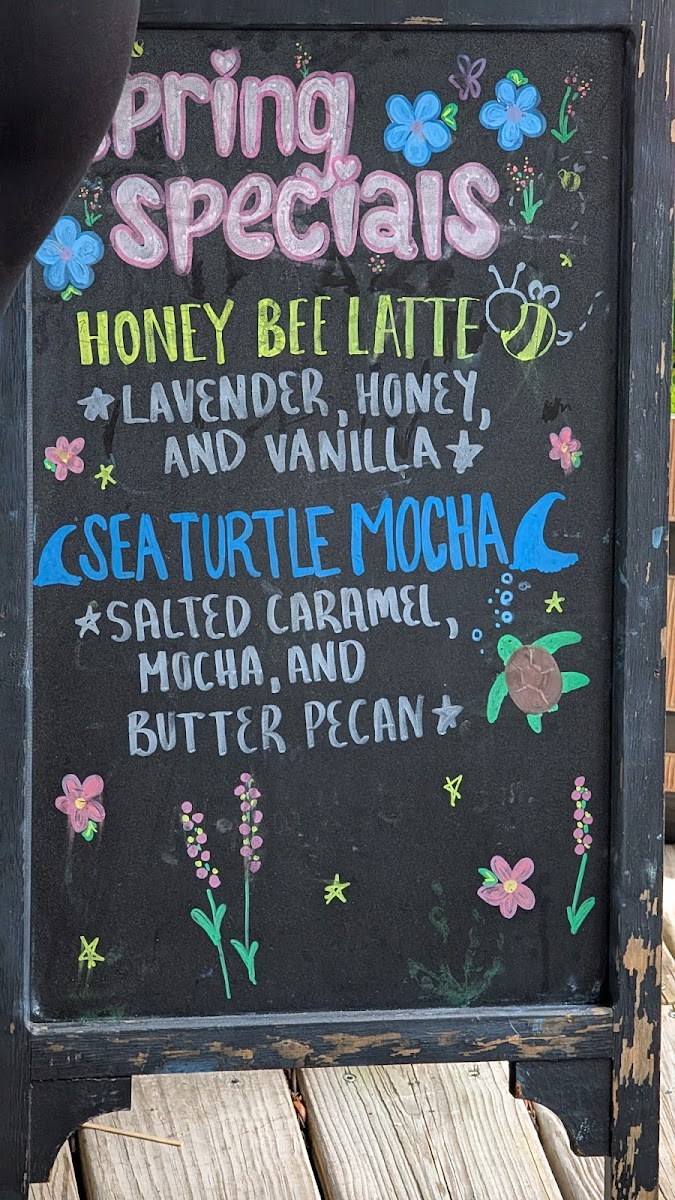 Spring
specials
HONEY BEE LATTE
LAVENDER, HONEY,
AND VANILLA
SEA TURTLE MOCHA
SALTED CARAMEL,
MOCHA, AND
BUTTER PECAN